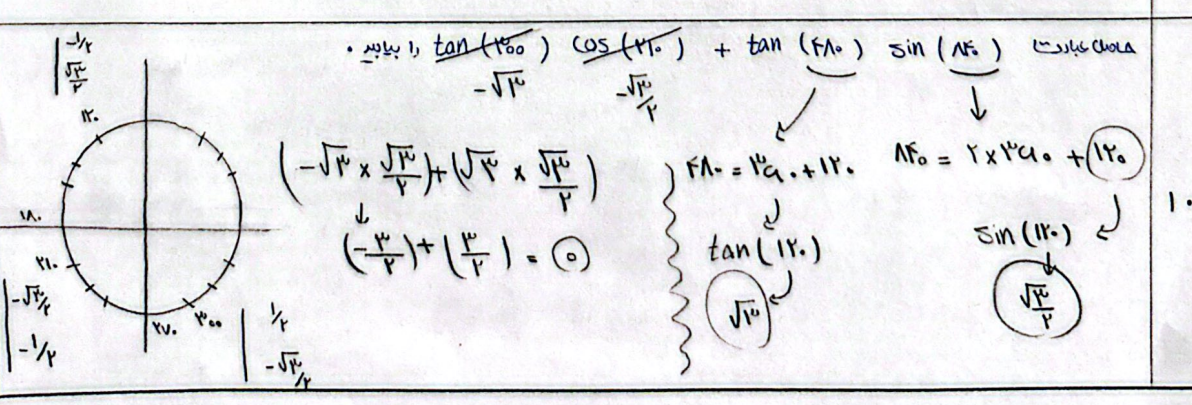 حاصل عبارت sin (۸۴۰) tan (۴۸۰) + cos (۲۱۰) tan (۳۰۰) را بیابید .
-√۳/۲ -√۳
۸۴۰ = ۲×۳۶۰ + ۱۲۰
sin (۱۲۰)
√۳/۲
۴۸۰ = ۳۶۰ + ۱۲۰
tan (۱۲۰)
√۳
(-√۳ × √۳/۲) + (√۳ × √۳/۲)
(-۳/۲) + (۳/۲) = ۰
-۱/۲
√۳/۲
۱۲۰
۱۸۰
۲۱۰
-√۳/۲
-۱/۲
۲۷۰
۳۰۰
۱/۲
-√۳/۲
۱۰